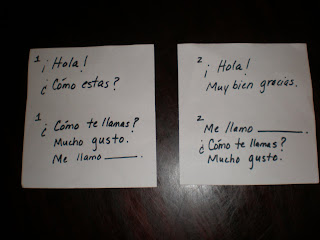 1 ¡Hola!
¿Cómo estas?
1
¿Cómo te llamas?
Mucho gusto.
Me llamo ______.
2
¡Hola!
Muy bien gracias.
2
Me llamo ______.
¿Cómo te llamas?
Mucho gusto.